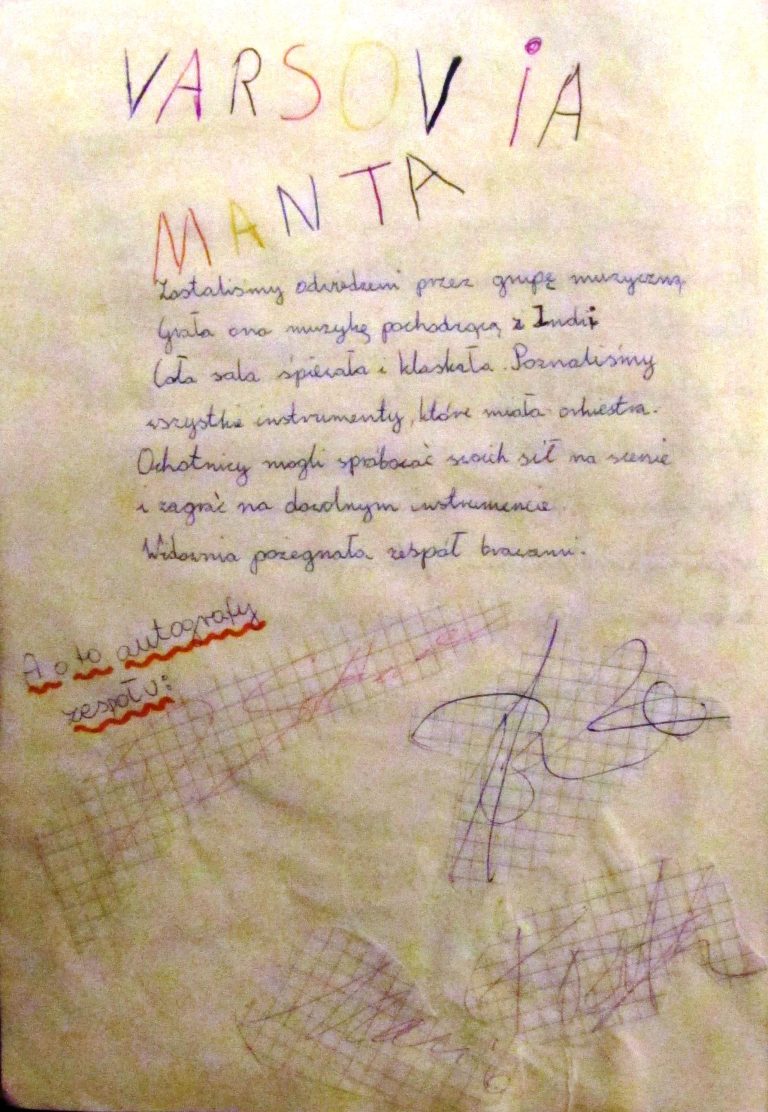 VARSOViA
MANTA
Zostaliśmy odwiedzeni przez grupę muzyczną.
Grała ona muzykę pochodzącą z Indii
Cała sala śpiewała i klaskała. Poznaliśmy
wszystkie instrumenty, które miała orkiestra.
Ochotnicy mogli spróbować swoich sił na scenie
i zagrać na dowolnym instrumencie.
Widownia pożegnała zespół brawami.
A oto autografy
zespołu: